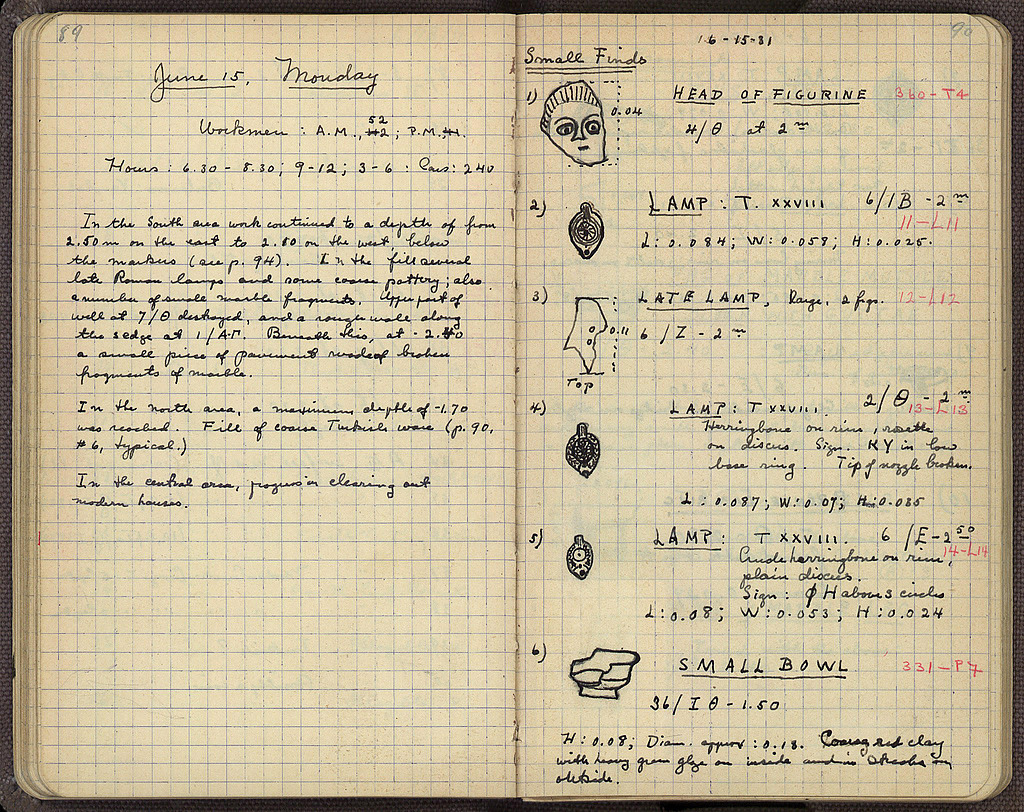 89
June 15, Monday
Workmen : A.M., 52 ; P.M.
Hours : 6.30 - 8.30; 9-12; 3-6 : Cars: 240
In the South area work continued to a depth of from
2.50 m on the east to 2.80 on the west, below
the markers (see p. 94). In the fill several
late Roman lamps and some coarse pottery; also
a number of small marble fragments. Upper part of
well at 7/Θ destroyed, and a rough wall along
the s edge at 1/ΑΓ. Beneath this, at - 2.
a small piece of pavement made of broken
fragments of marble.
In the north area, a maximum depth of -1.70
was reached. Fill of coarse Turkish ware (p. 90,
#6, typical.)
In the central area, progress in clearing out
modern houses.
90
16-15-31
Small Finds
1) HEAD OF FIGURINE 360-T4
0.04
4/Θ at 2 m
2) LAMP: T. XXVIII 6/ΙΒ - 2 m
11-L11
L: 0.084; W: 0.058; H: 0.025.
3) LATE LAMP, Large, 2 figs. 12-L12
0.11
6/Ζ - 2 m
Top
4) LAMP: T XXVIII. 2/Θ - 2 m
13-L13
Herringbone on rim, rosette
on discus. Sign. KY in low
base ring. Tip of nozzle broken.
L: 0.087; W: 0.07; H: 0.035
5) LAMP: T XXVIII. 6/Ε - 2 50
14-L14
Crude herringbone on rim,
plain discus.
Sign: φ H above 3 circles
L: 0.08; W: 0.053; H: 0.024
6) SMALL BOWL 331-P7
36/ΙΘ - 1.50
H: 0.08; Diam. approx: 0.13. Coarse red clay
with heavy green glaze on inside and in streaks on
outside.